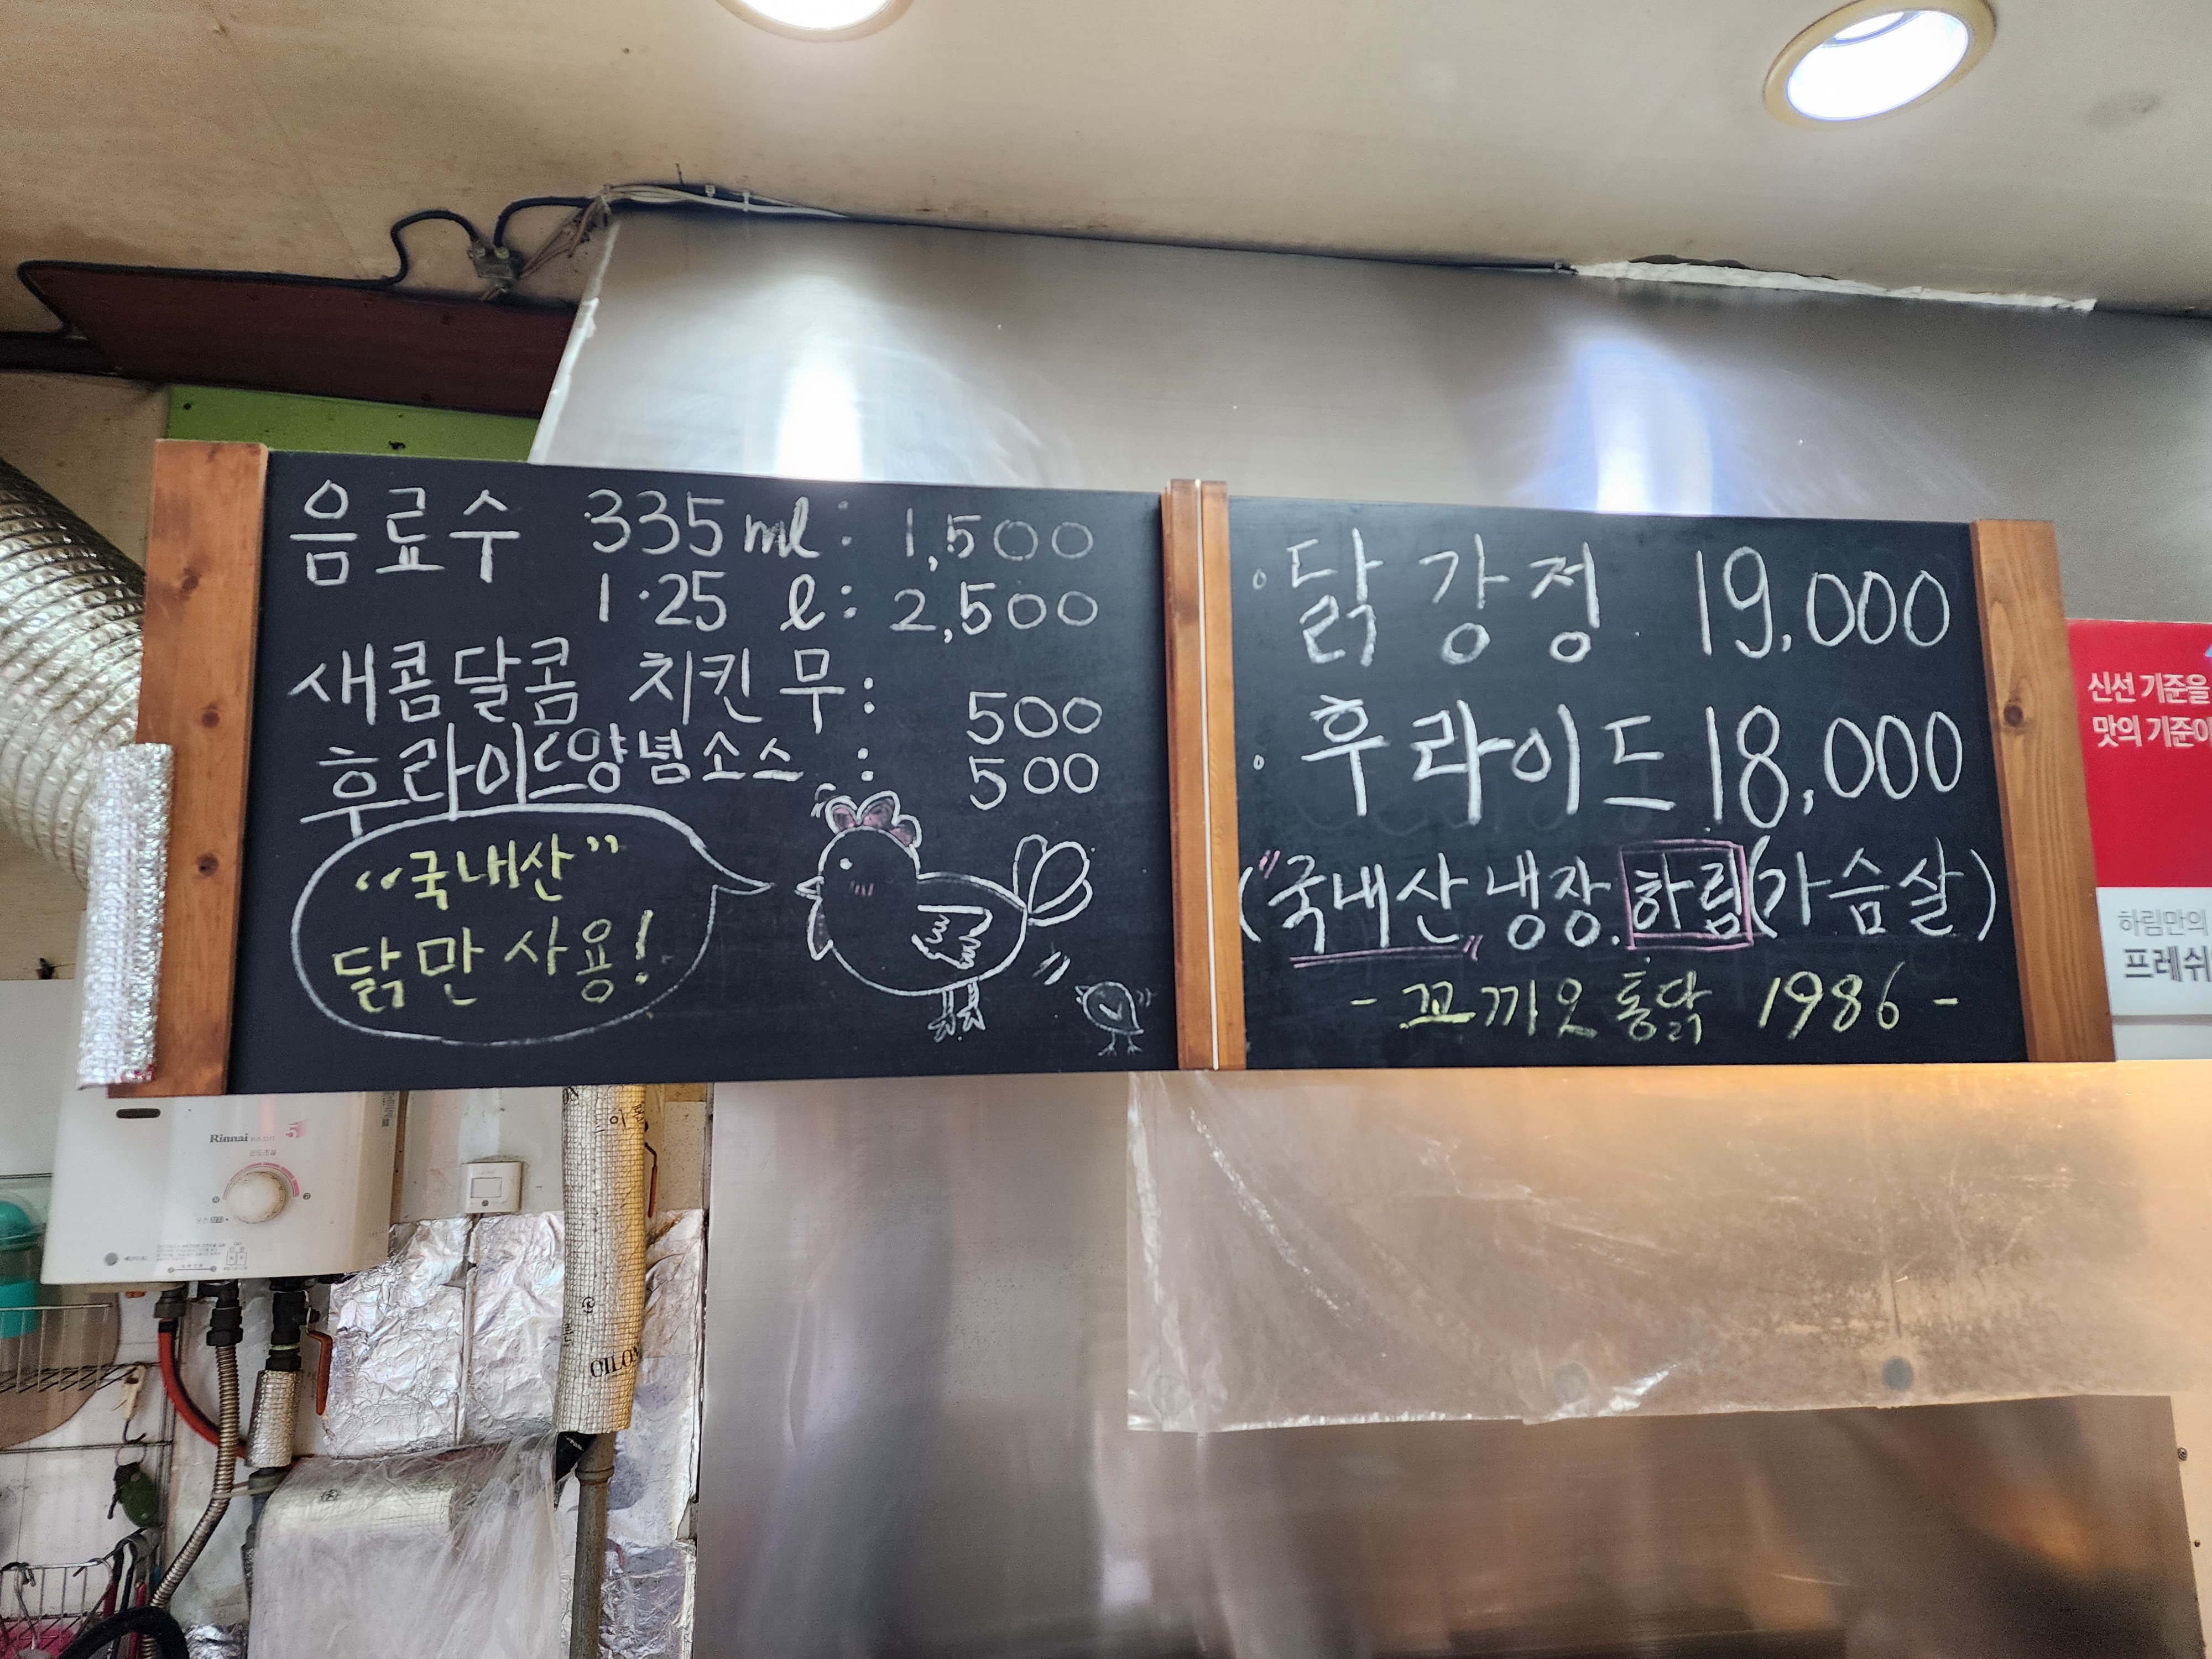 음료수 335ml : 1,500
1.25 l : 2,500
새콤달콤 치킨무 : 500
후라이드양념소스 : 500
"국내산"
닭만 사용!
닭강정 19,000
후라이드 18,000
("국내산" 냉장. 하림(가슴살)
- 꼬끼오 통닭 1986 -
신선 기준을
맛의 기준이
하림만의
프레쉬
Rinnai